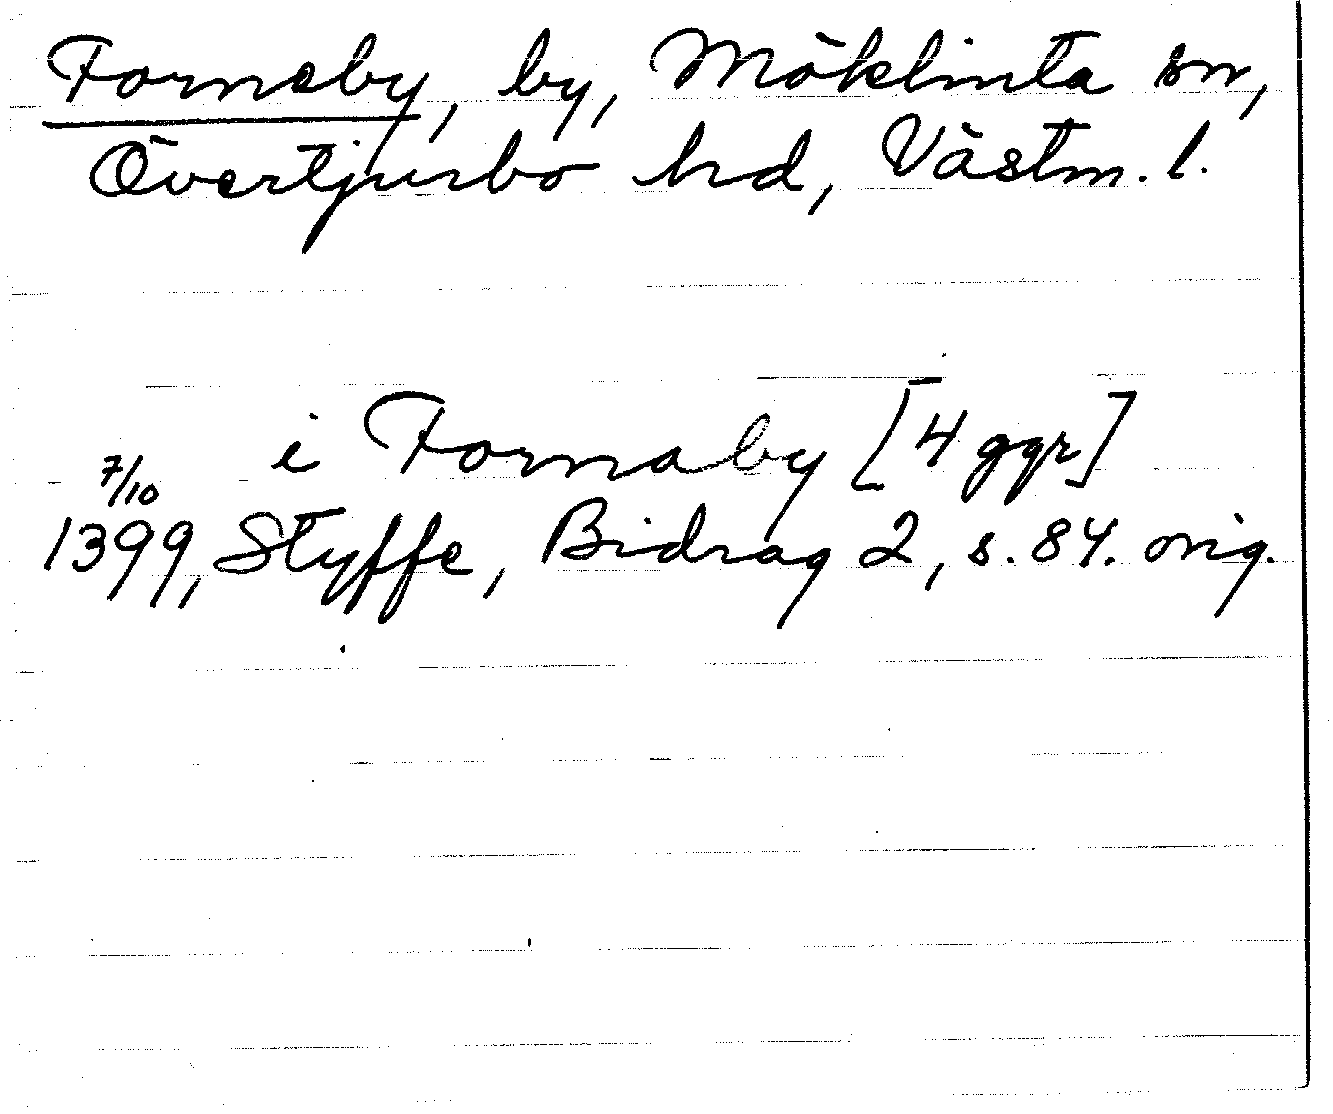 Forneby, by, Möklinta sn,
Övertjurbo hd, Västm. l.
i Fornaby [4 ggr]
7/10
1399, Styffe, Bidrag 2, s. 84. orig.